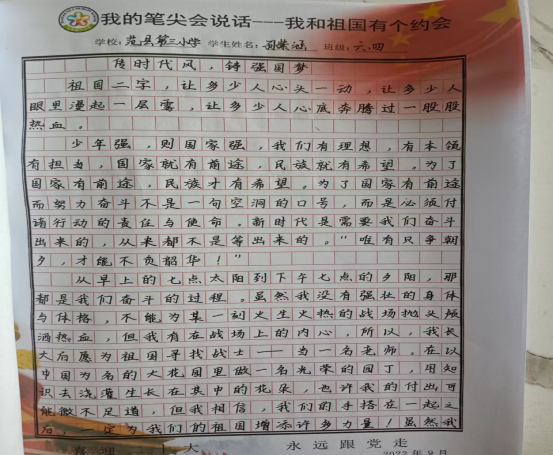 我的笔尖会说话---我和祖国有个约会
学校:范县第三小学 学生姓名: 班级:六.四
传时代风,铸强国梦
祖国二字,让多少人心头一动,让多少人
眼里漫起一层雾,让多少人心底奔腾过一股股
热血。
少年强,则国家强,我们有理想,有本领
有担当,国家就有前途,民族就有希望。为了
国家有前途,民族才有希望。为了国家有前途
而努力奋斗不是一句空洞的口号,而是必须付
诸行动的责任与使命。新时代是需要我们奋斗
出来的,从来都不是等出来的。“唯有只争朝
夕,才能不负韶华!”
从早上的七点太阳到下午七点的夕阳,那
都是我们奋斗的过程。虽然我没有强壮的身体
与体格,不能为集一刻火生火热的战场抛头颅
洒热血,但我有在战场上的内心,所以,我长
大后愿为祖国寻找战士——当一名老师。在以
中国为名的大花园里做一名光荣的园丁,用知
识去浇灌生长在其中的花朵,也许我的付出可
能微不足道,但我相信,我们的手搭在一起之
后,一定为我们的祖国增添许多力量!虽然我
喜迎二十大 永远跟党走
2022年9月